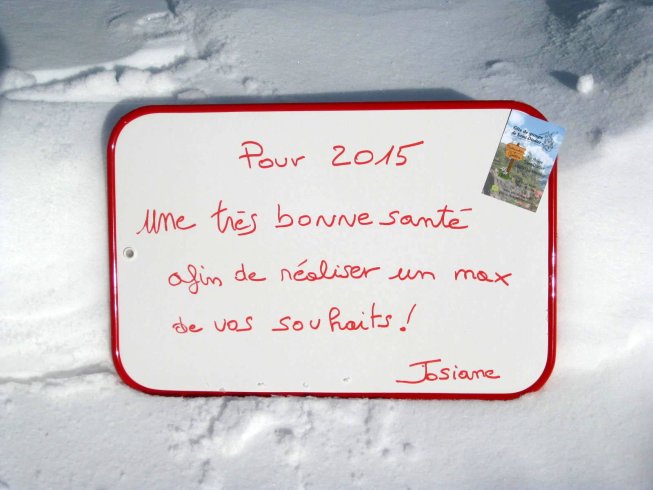 Pour 2015
Une très bonne santé
afin de réaliser un max
de vos souhaits!
Josiane